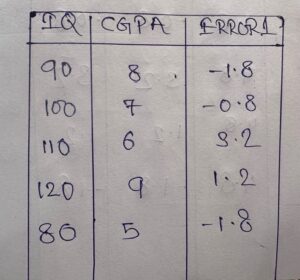 IQ CGPA ERROR1
90 8 -1.8
100 7 -0.8
110 6 3.2
120 9 1.2
80 5 -1.8